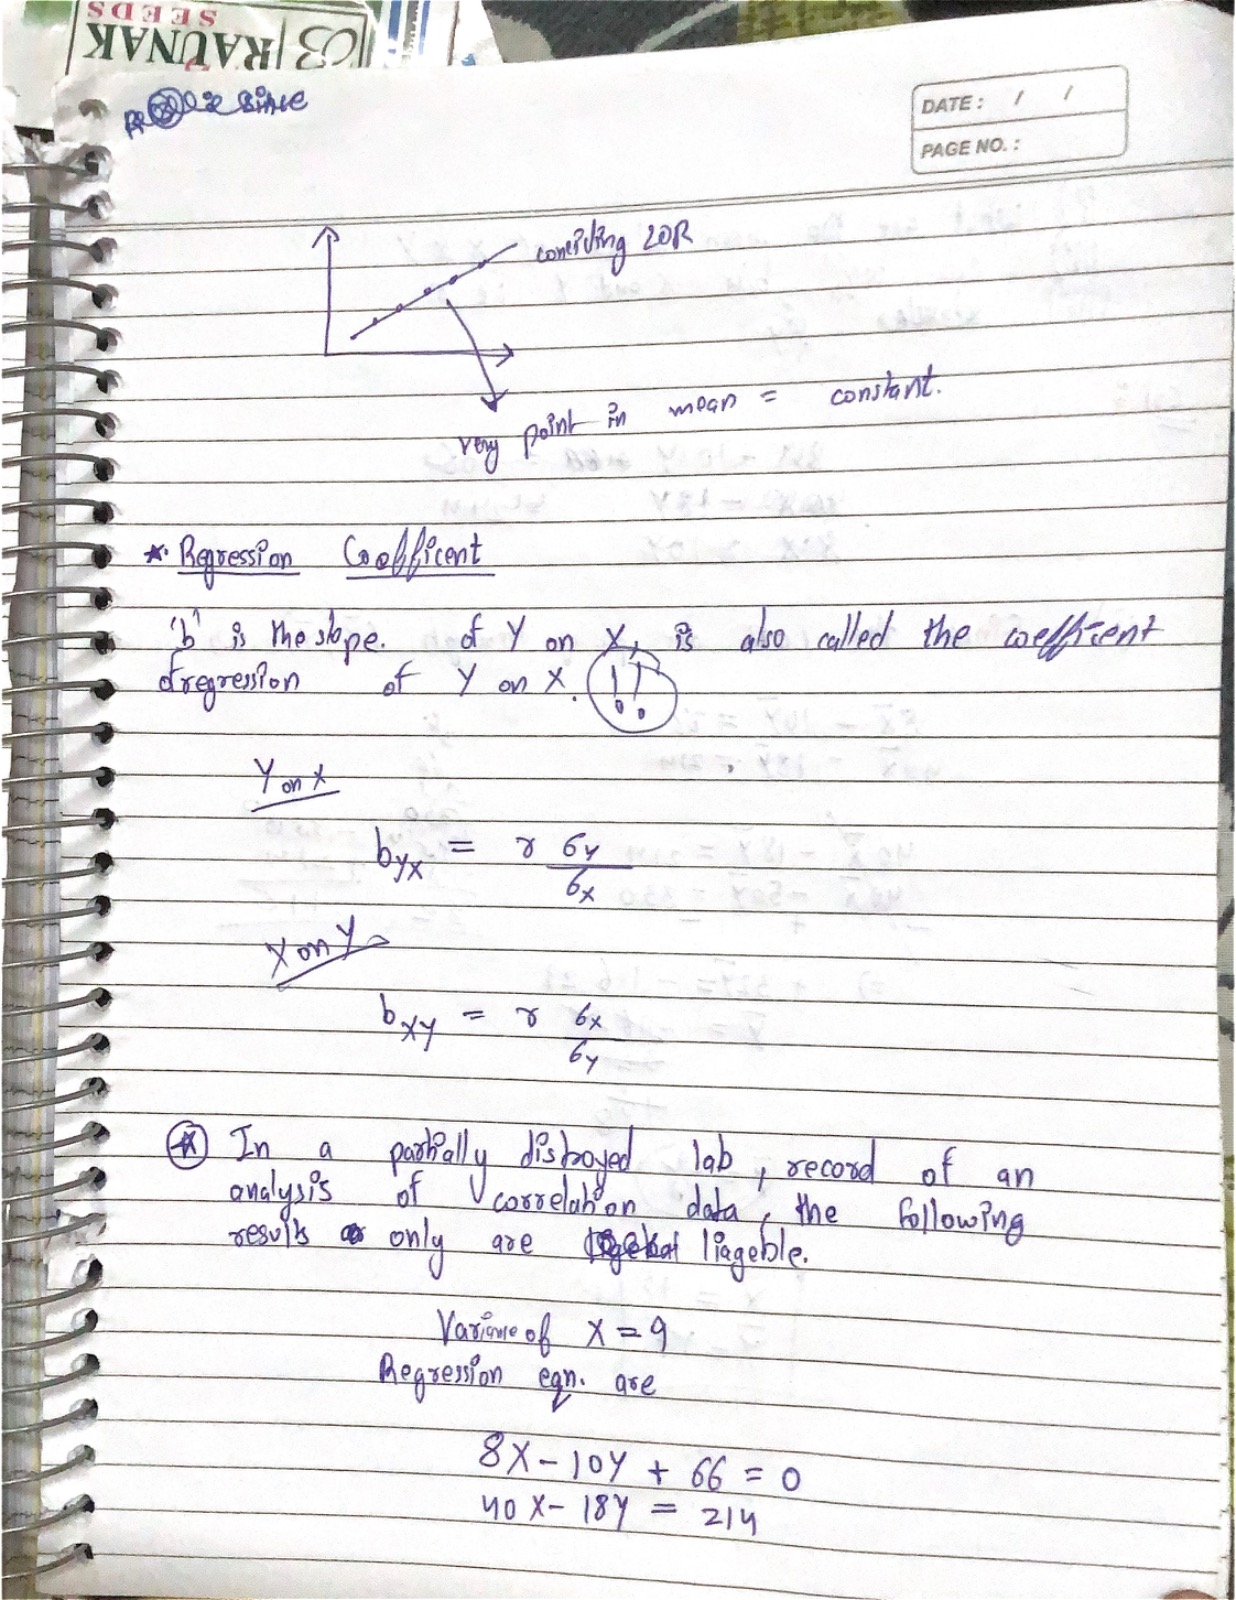 SEEDS
RAUNAK
DATE: / /
PAGE NO. :
LOR
very point in mean = constant.
* Regression Coefficent
'b' is the slope. of Y on X, is also called the coefficient
of regression of Y on X. !!
Y on X
byx = r σy / σx
X on Y
bxy = r σx / σy
* In a partially distroyed lab, record of an
analysis of correlation data, the following
results only are liageble.
Variance of X = 9
Regression eqn. are
8X - 10Y + 66 = 0
40X - 18Y = 214